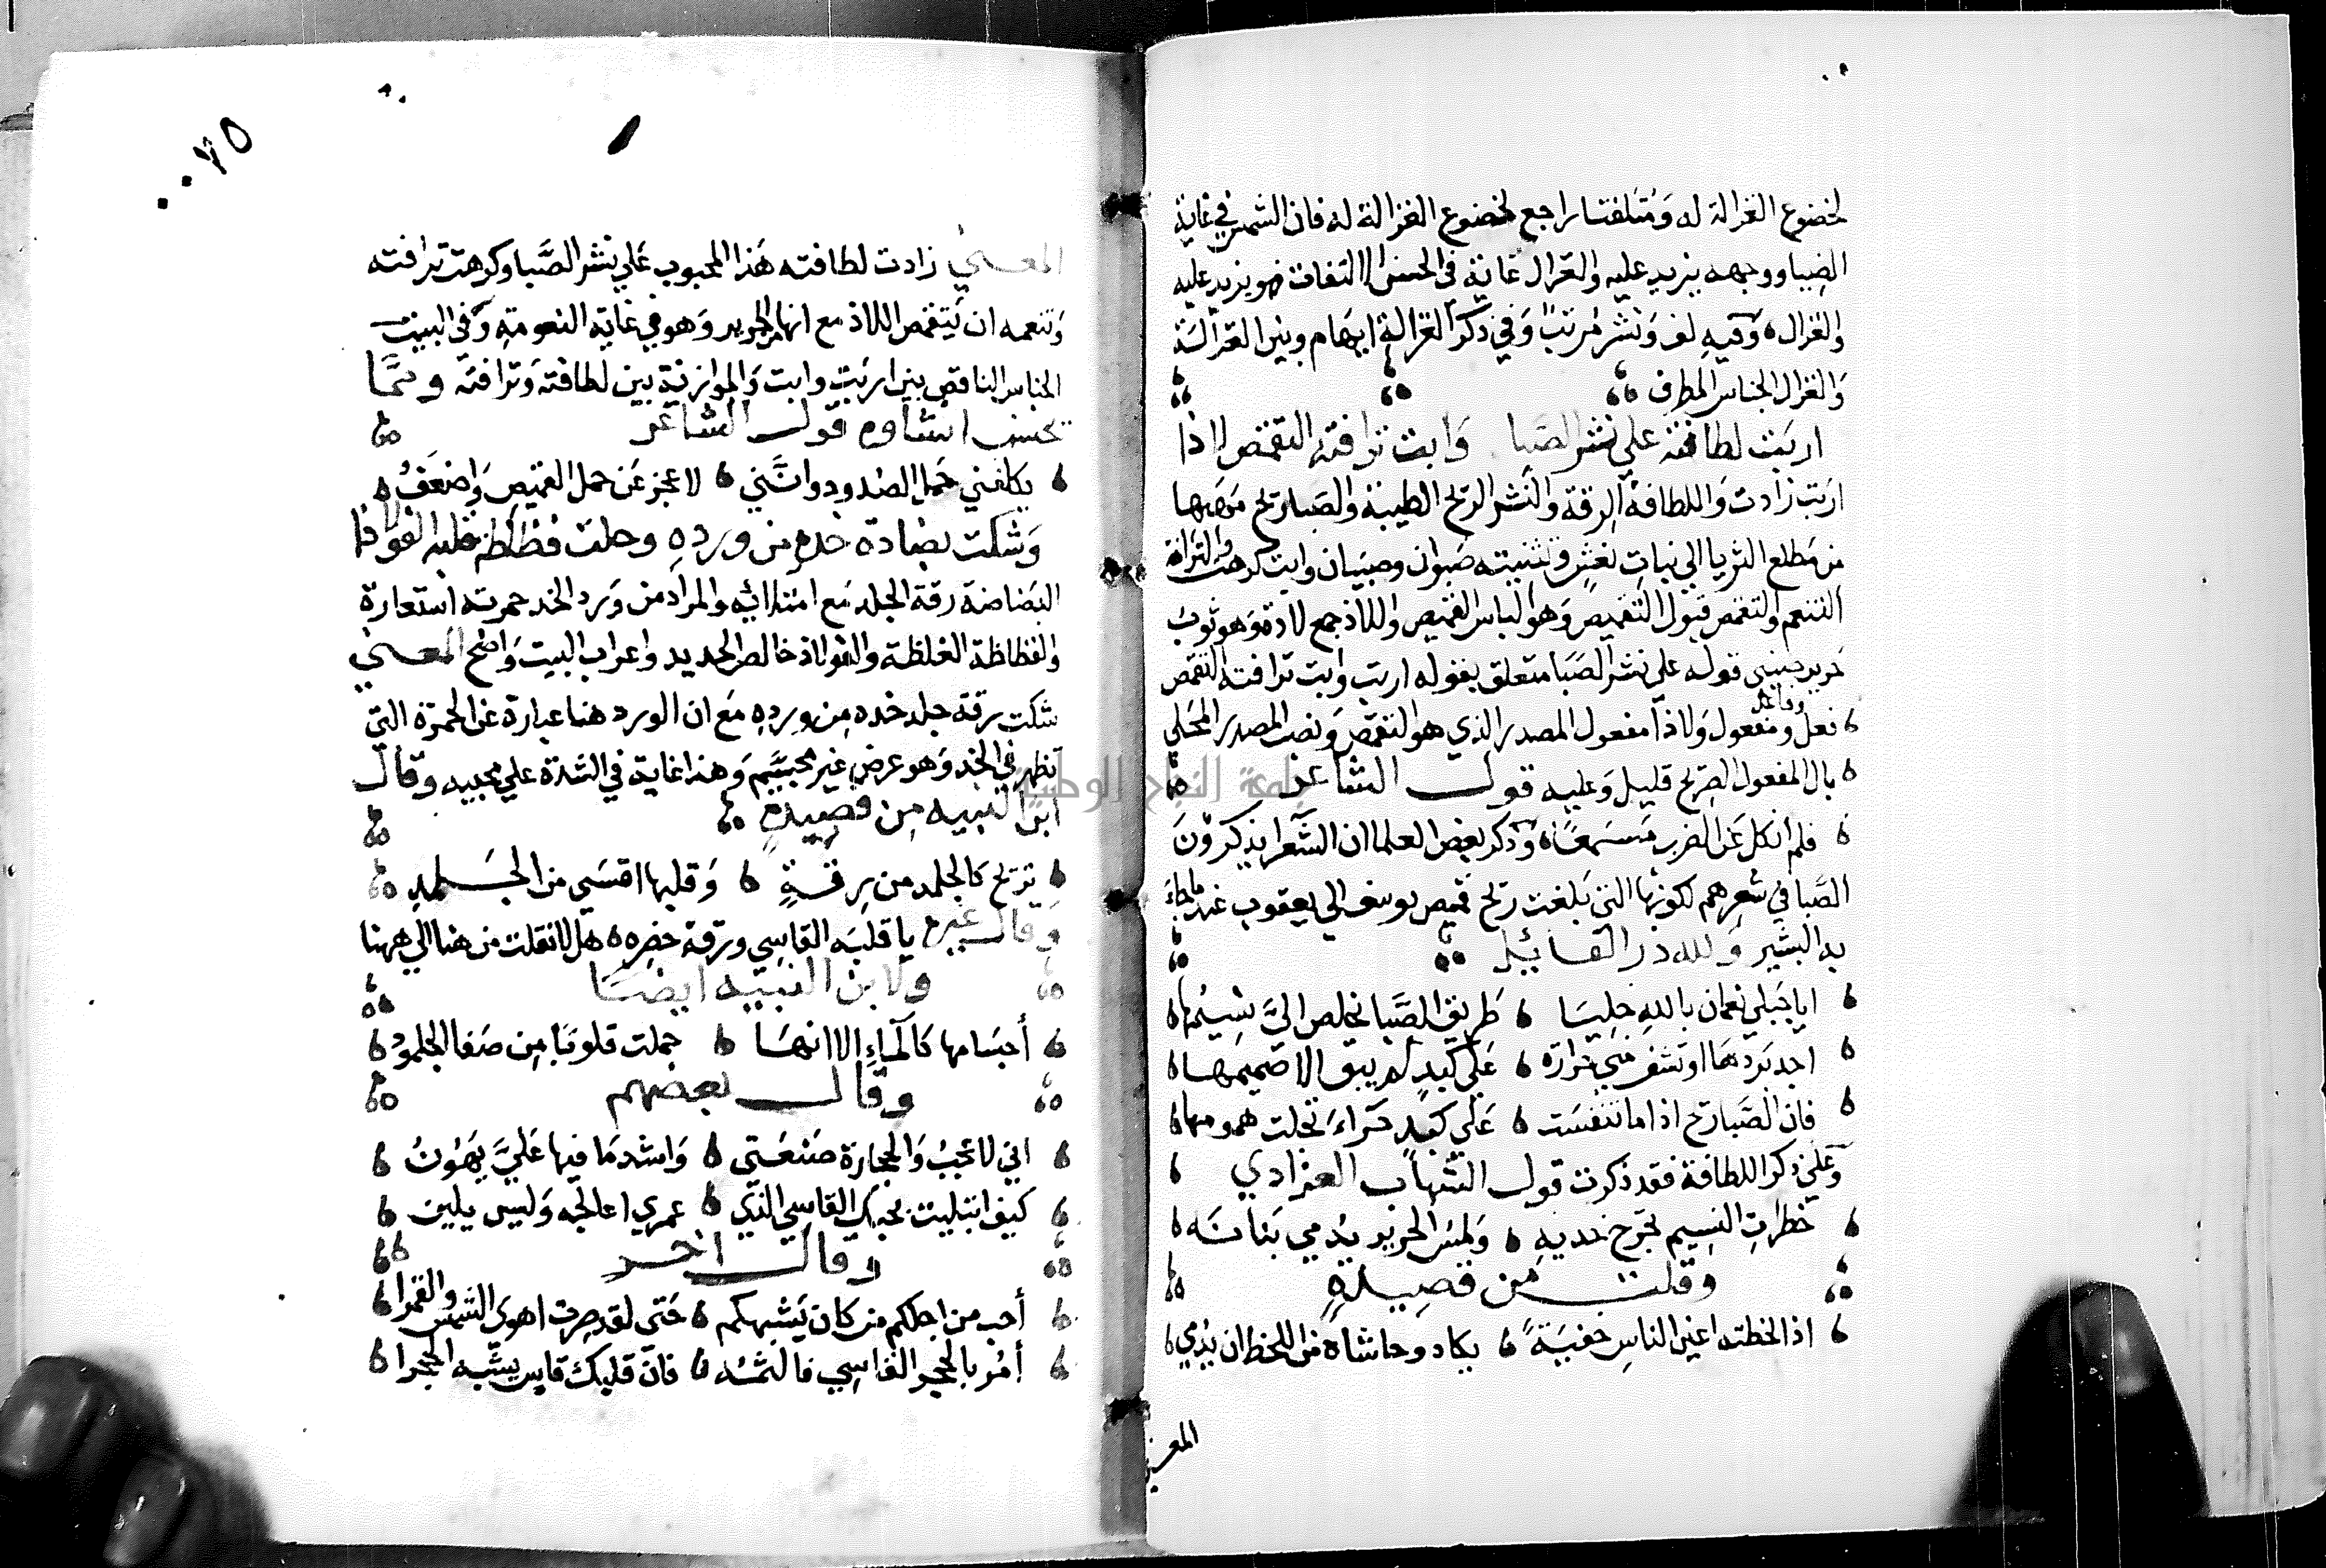 لخضوع الغزالة له ومتلفتا راجع لخضوع الغزالة له فان الشمس في غاية
الضيا ووجهه يزيد عليه والغزال غاية في الحسن الالتفات فهو يزيد عليه
والغزال وفيه لف ونشر مرتب وفي ذكر الغزالة ايهام وبين الغزالة
والغزال الجناس المطرف
اربت لطافته على نشر الصبا وابت ترافته التقمص لاذا
اربت زادت واللطافة الرقة والنشر الريح الطيبة والصبا ريح مهبها
من مطلع الثريا الي نبات نعش وتثنيته صبوان وصبيان وابت كرهت والترافة
التنعم والتقمص قبول التقميص وهو لباس القميص واللاذ جمع لاذة وهو ثوب
حرير صيني قوله على نشر الصبا متعلق بقوله اربت وابت ترافته التقمص
فعل وفاعل ومفعول ولاذا مفعول المصدر الذي هو التقمص ونصب المصدر المحلي
بال المفعول الصريح قليل وعليه قول الشاعر
فلم انكل عن الضرب مسمعا وذكر بعض العلما ان الشعرا يذكرون
الصبا في شعرهم لكونها التي بلغت ريح قميص يوسف الي يعقوب عند ما جاء
به البشير ولله در القائل
ايا جبلي نعمان بالله خليا طريق الصبا يخلص الي نسيمها
اجد بردها او تشف مني حرارة علي كبد لم يبق الا صميمها
فان الصبا ريح اذا ما تنفست علي كبد حراء تجلت همومها
وعلي ذكر اللطافة فقد ذكرت قول الشهاب العزازي
خطرات النسيم تجرح خديه ولمس الحرير يدمي بنانه
وقلت من قصيدة
اذا لحظته اعين الناس خفية يكاد وحاشاه من اللحظ ان يدمي
المعني
٧٥
المعني زادت لطافته هذا المحبوب علي نشر الصبا وكرهت ترافته
وتنعمه ان يتقمص اللاذ مع انها من الحرير وهو في غاية النعومة وفي البيت
الجناس الناقص بين اربت وابت والموازنة بين لطافته وترافته ومما
يحسن انشاوه قول الشاعر
يكلفني حمل الصدود وانني لاعجز عن حمل القميص واضعف
وشكت بضاضة خده من ورده وحلت فظاظة قلبه الفولاذا
البضاضة رقة الجلد مع امتلائه والمراد من ورد الخد حمرته استعارة
والفظاظة الغلظة والفولاذ خالص الحديد واعراب البيت واضح المعني
شكت رقة جلد خده من ورده مع ان الورد هنا عبارة عن الحمرة التي
تظهر في الخد وهو عرض غير مجسم وهذا غاية في الشدة علي محبيه وقال
ابن النبيه من قصيدة
ترتج كالجلد من رقة وقلبها اقسي من الجلمد
وقال غيره يا قلبه القاسي ورقة خصره هلا نقلت من هنا الي ههنا
ولابن النبيه ايضا
أجسامها كالماء الا انها حملت قلوبا من صفا الجلمود
وقال بعضهم
اني لاعجب والحجارة صنعتي واشد ما فيها علي يهون
كيف ابتليت بحبك القاسي الذي عمري اعالجه وليس يلين
وقال اخر
أحب من اجلكم من كان يشبهكم حتى لقد صرت اهوى الشمس والقمرا
أمر بالحجر القاسي فالثمه فان قلبك قاس يشبه الحجرا
جامعة النجاح الوطنية